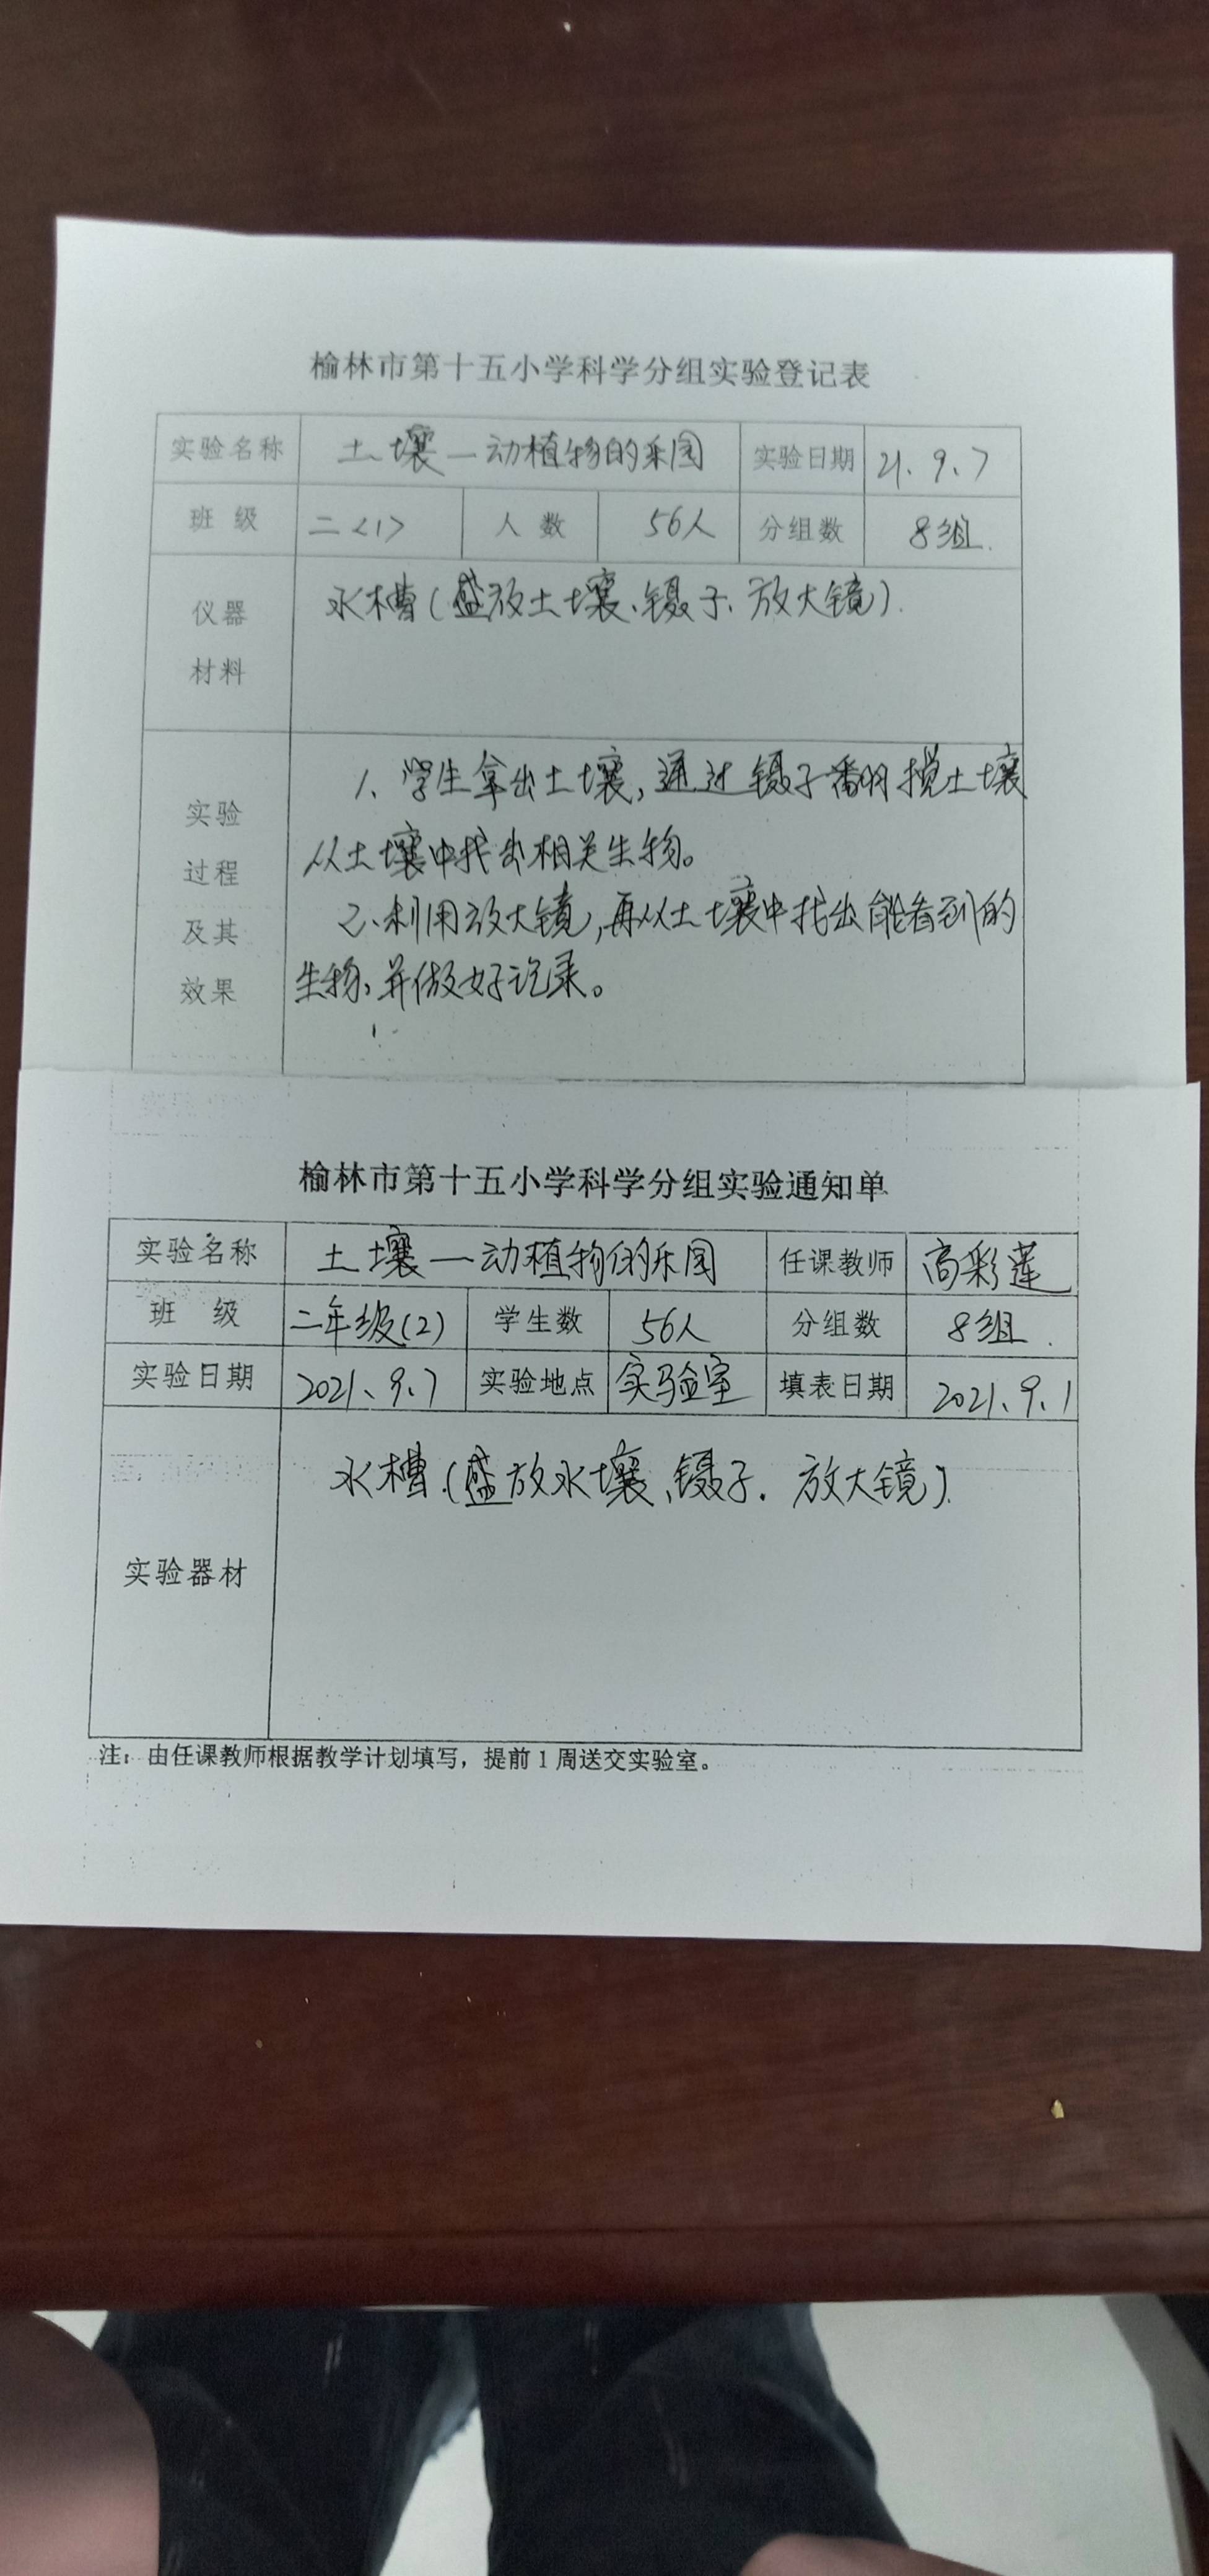 榆林市第十五小学科学分组实验登记表
实验名称 土壤—动植物的乐园 实验日期 21.9.7
班 级 二<1> 人 数 56人 分组数 8组.
仪器 材料 水槽(盛放土壤、镊子、放大镜).
实验 过程 及其 效果
1、学生拿出土壤,通过镊子翻搅土壤
从土壤中找出相关生物。
2、利用放大镜,再从土壤中找出能看到的
生物,并做好记录。
榆林市第十五小学科学分组实验通知单
实验名称 土壤—动植物的乐园 任课教师 高彩莲
班 级 二年级(2) 学生数 56人 分组数 8组.
实验日期 2021、9、7 实验地点 实验室 填表日期 2021、9、1
实验器材 水槽.(盛放水壤、镊子. 放大镜).
注:由任课教师根据教学计划填写,提前1周送交实验室。